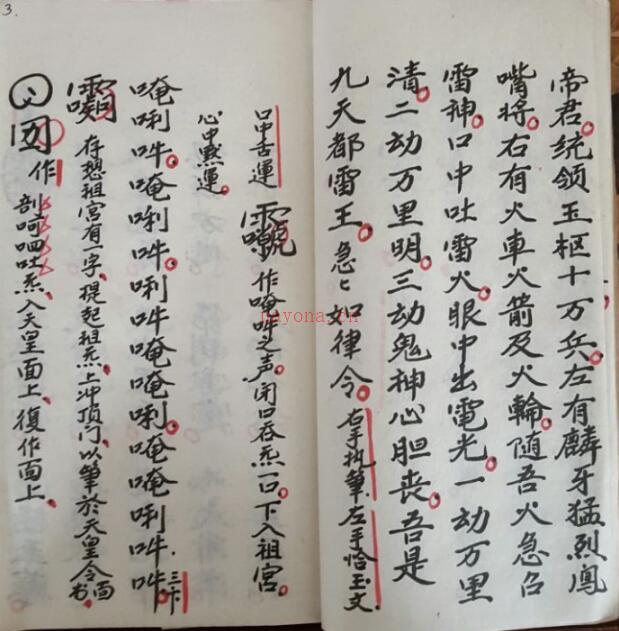 帝君。统领玉枢十万兵。左有麟牙猛烈鳳
嘴將。右有火車火箭及火輪。随吾火急召
雷神。口中吐雷火。眼中出電光。一动万里
清。二动万里明。三动鬼神心胆喪。吾是
九天都雷王。急々如律令。右手执筆.左手恰玉文.
口中舌運
心中默運。
作唵吽之声。闭口吞炁一口。下入祖宫。
唵唎吽。唵唎吽。唎吽唵唵唎。唵唵唎吽吽。三卡.
存想祖宫有一字、提起祖炁上冲顶门、以筆於天皇令面书、
作
吐炁、入天皇面上、復作面上、
3.
nayona.cn